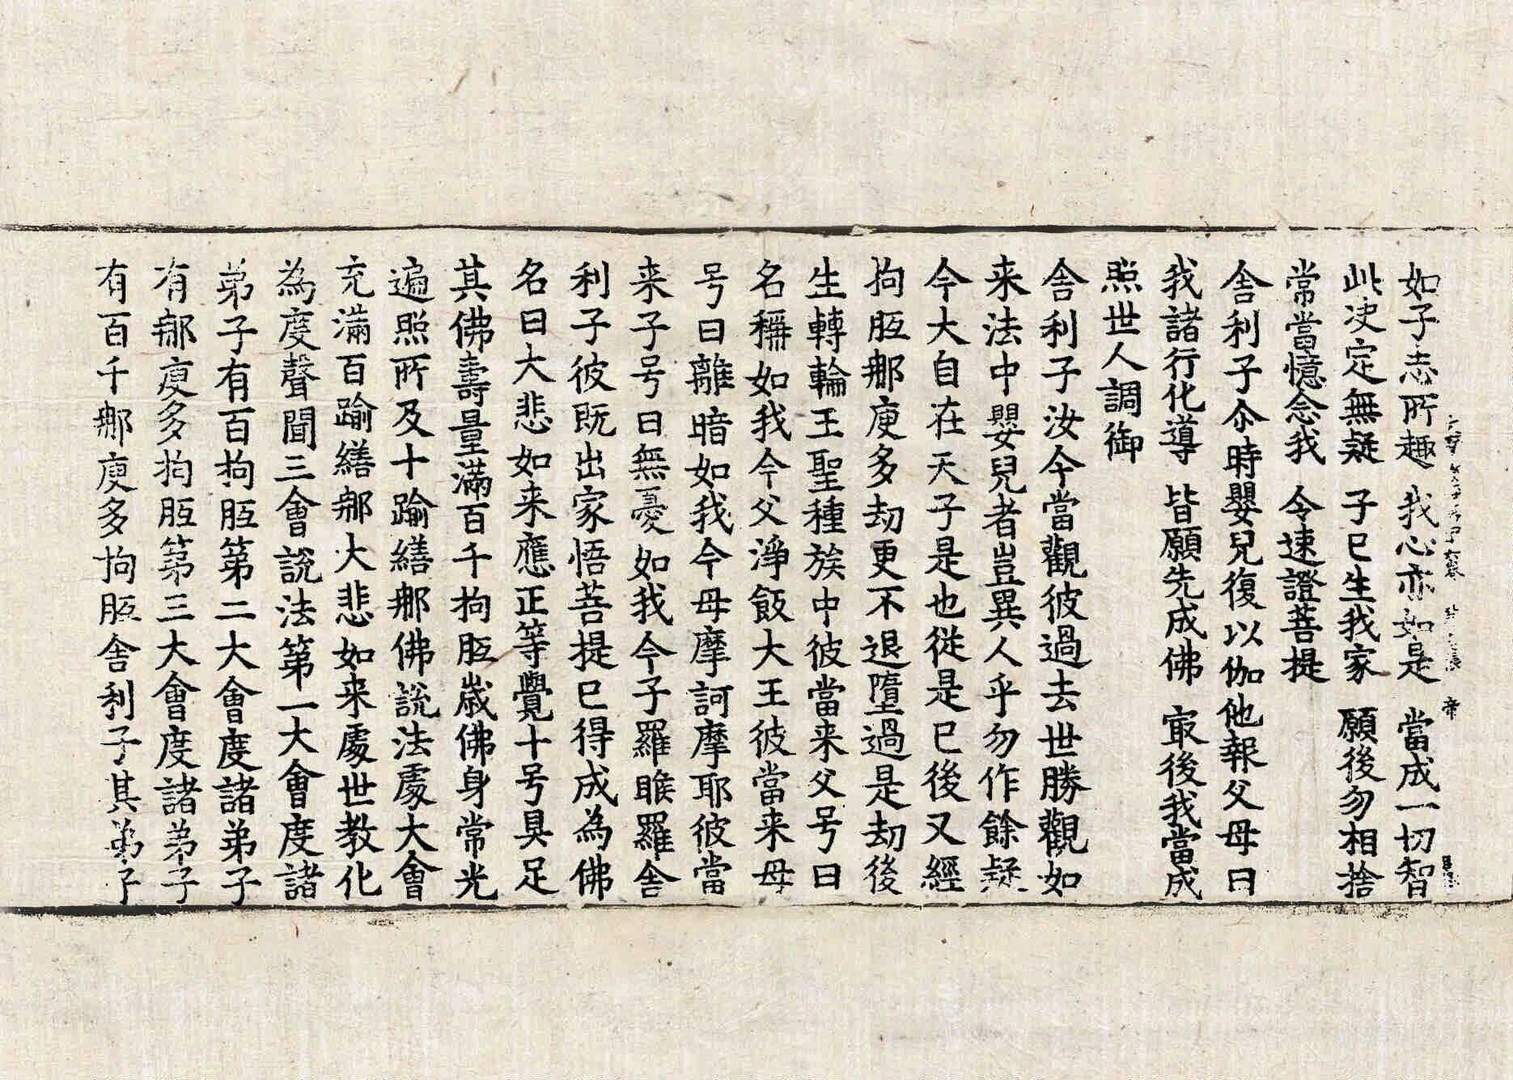 如子志所趣 我心亦如是 當成一切智
此决定無疑 子已生我家 願後勿相捨
常當憶念我 令速證菩提
舍利子尒時嬰兒復以伽他報父母曰
我諸行化導 皆願先成佛 㝡後我當成
照世人調御
舍利子汝今當觀彼過去世勝觀如
来法中嬰兒者豈異人乎勿作餘疑
今大自在天子是也從是已後又經
拘胝那庾多劫更不退墮過是劫後
生轉輪王聖種族中彼當来父号曰
名稱如我今父淨飯大王彼當来母
号曰離暗如我今母摩訶摩耶彼當
来子号曰無憂如我今子羅睺羅舍
利子彼既出家悟菩提已得成為佛
名曰大悲如来應正等覺十号具足
其佛壽量滿百千拘胝歲佛身常光
遍照所及十踰繕那佛說法處大會
充滿百踰繕那大悲如来處世教化
為度聲聞三會說法第一大會度諸
弟子有百拘胝第二大會度諸弟子
有那庾多拘胝第三大會度諸弟子
有百千那庾多拘胝舍利子其弟子